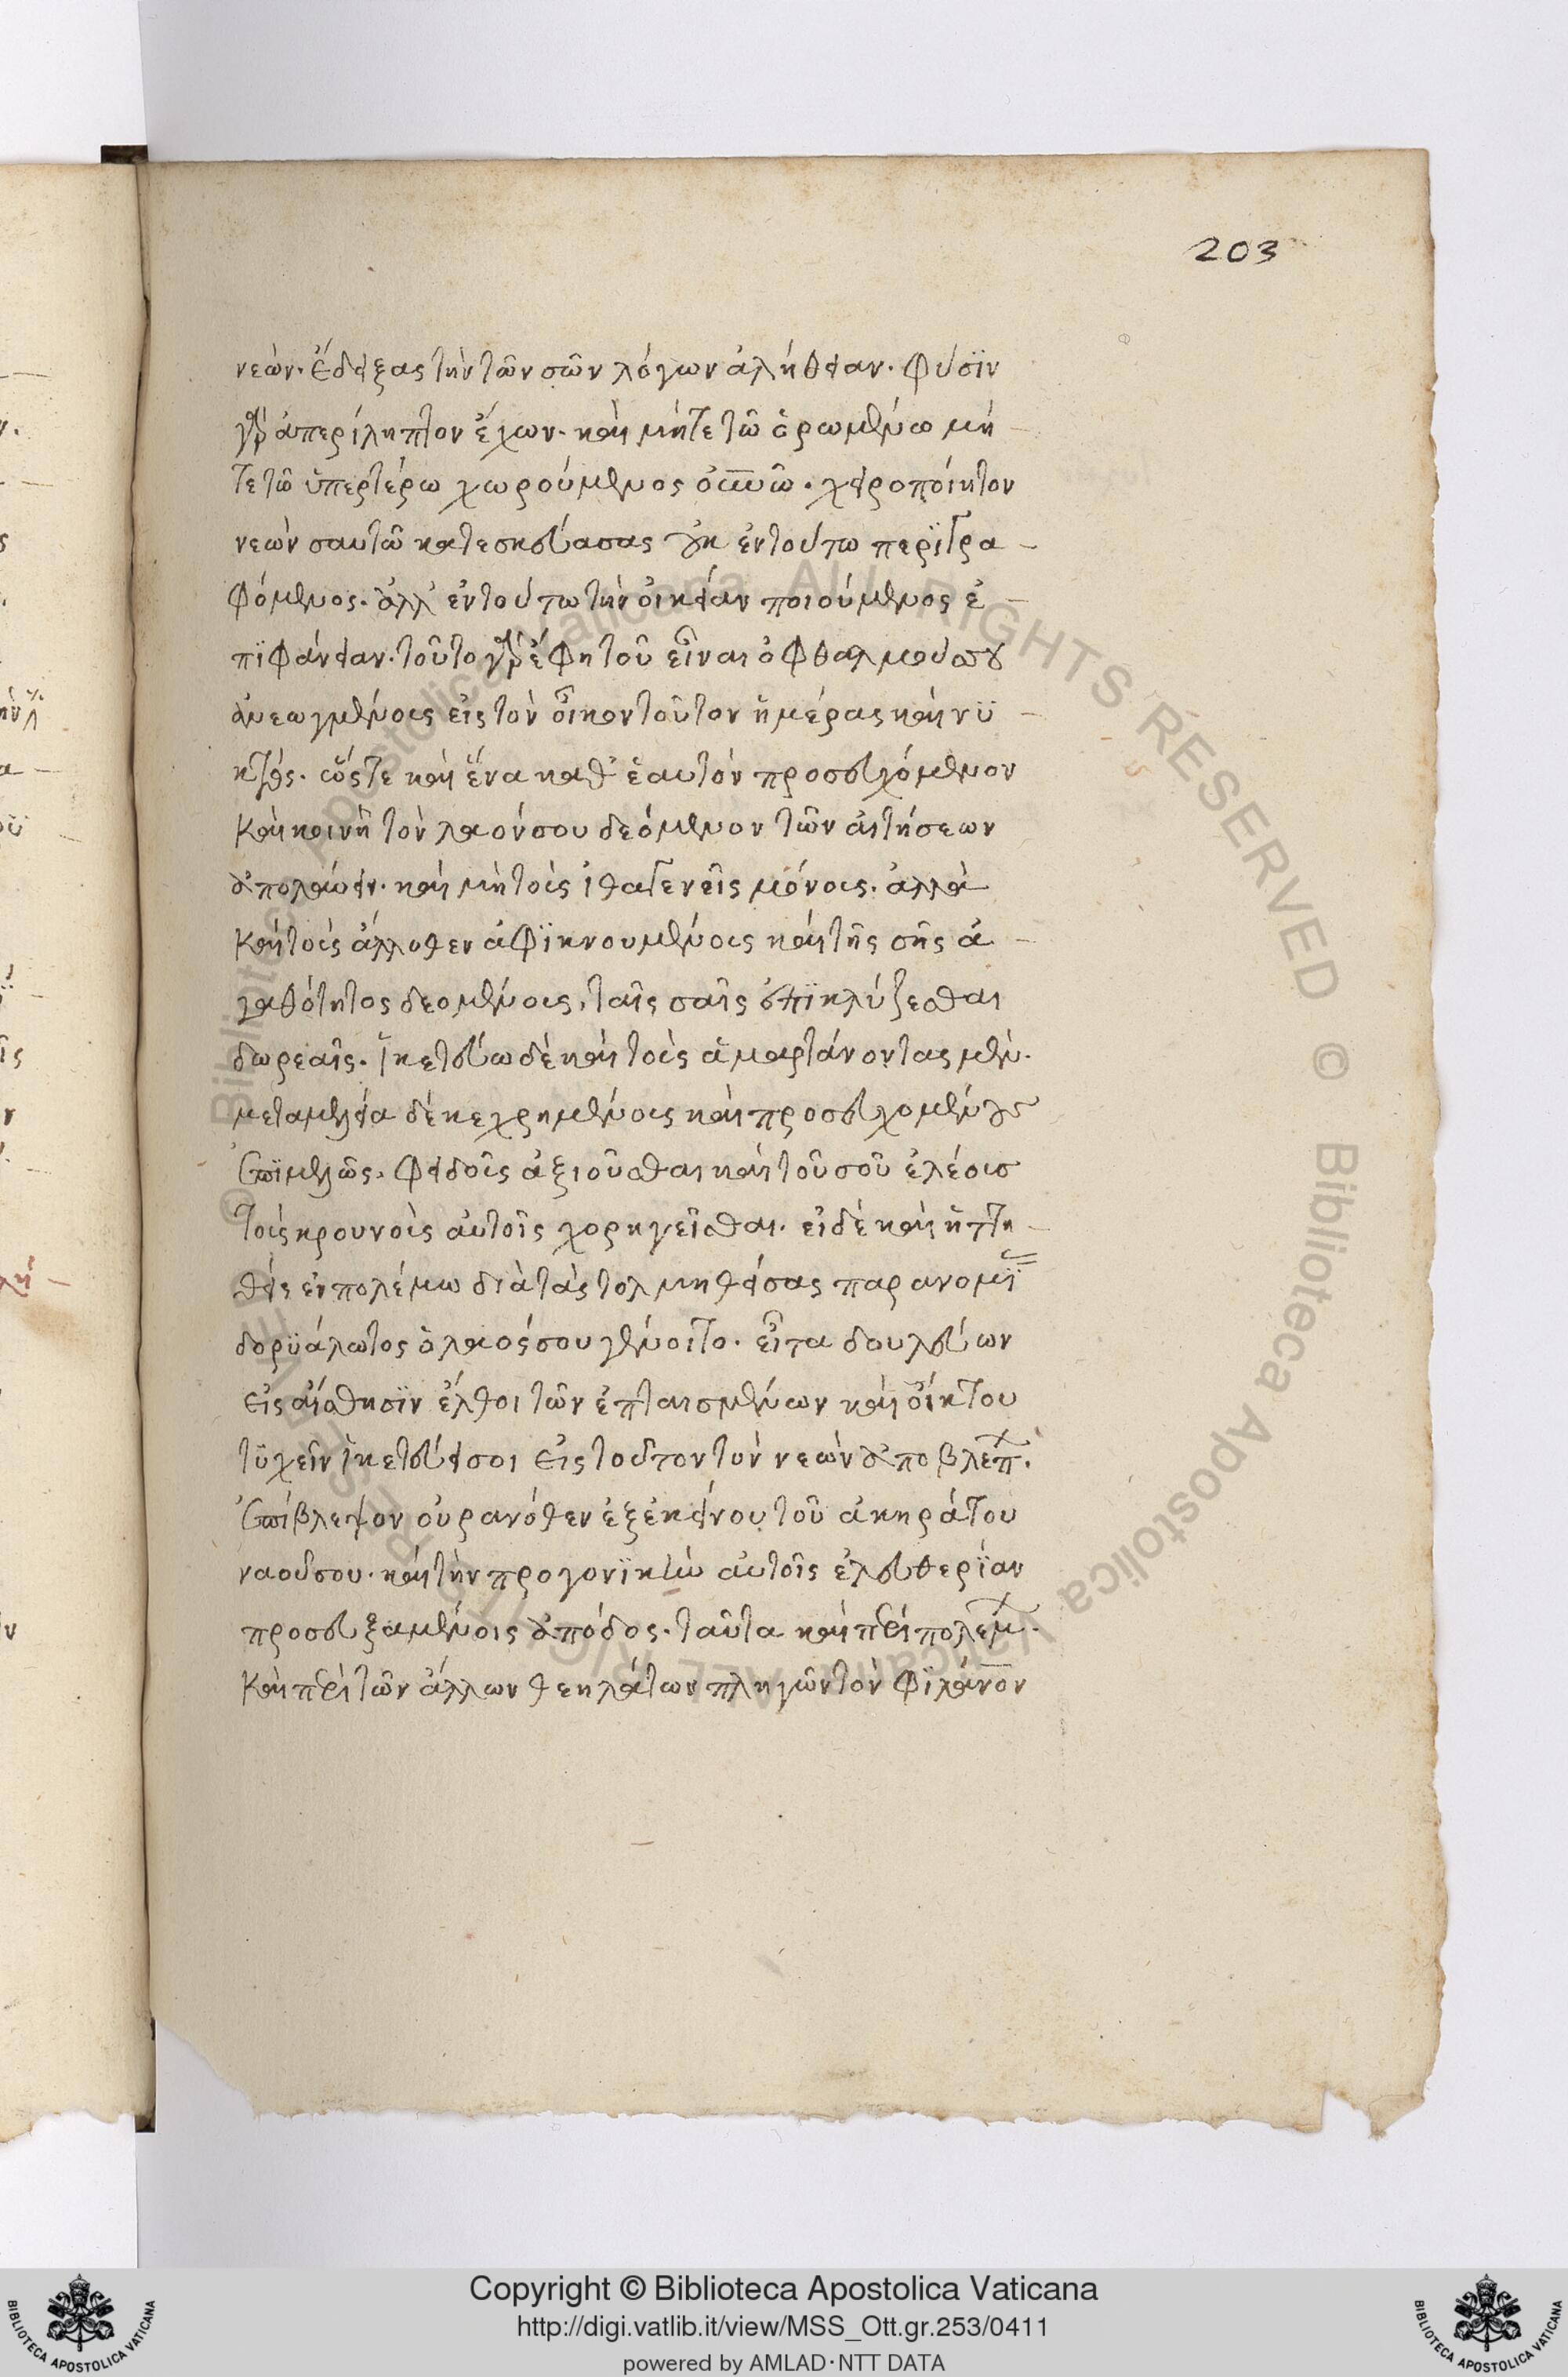 203
νεών· ἔδειξας τὴν τῶν σῶν λόγων ἀλήθειαν· φύσϊν
γὰρ ἀπερίληπτον ἔχων· καὶ μήτε τῶ ὁρωμένω μή
τε τῶ ὑπερτέρω χωρούμενος οὐνῶ· χειροποίητον
νεὼν σαυτῶ κατεσκεύασας οὐκ ἐν τούτω περϊγρα
φόμενος· ἀλλ' ἐν τούτω τὴν οἰκείαν ποιούμενος ἐ
πϊφάνειαν· τοῦτο γὰρ ἔφη τοῦ εἶναι ὀφθαλμούς σου
ἀνεωγμένοις εἰς τὸν οἶκον τοῦτον ἡμέρας καὶ νϋ
κτός· ὥστε καὶ ἕνα καθ' ἑαυτὸν προσευχόμενον
καὶ κοινῆ τὸν λαόν σου δεόμενον τῶν αἰτήσεων
ἀπολαύειν· καὶ μὴ τοῖς ἰθαγενεῖς μόνοις· ἀλλὰ
καὶ τοῖς ἄλλοθεν ἀφϊκνουμένοις καὶ τῆς σῆς ἀ
γαθότητος δεομένοις, ταῖς σαῖς ἐπϊκλύζεσθαι
δωρεαῖς· ἱκετεύω δὲ καὶ τοὺς ἁμαρτάνοντας μὲν·
μεταμελεία δὲ κεχρημένοις καὶ προσευχομένους
ἐπϊμελῶς· φειδοῖς ἀξιοῦσθαι καὶ τοῦ σοῦ ἐλέοις
τοὺς κρουνοὺς αὐτοῖς χορηγεῖσθαι· εἰ δὲ καὶ ἡττη
θεὶς ἐν πολέμω διὰ τὰς τολμηθείσας παρανομϊ
δορϋάλωτος ὁ λαός σου γένοιτο· εἶτα δουλεύων
εἰς αἴσθησϊν ἔλθοι τῶν ἐπταισμένων καὶ οἴκτου
τϋχεῖν ἱκετεύει σοι εἰς τοῦτον τὸν νεὼν ἀποβλέπ·
ἐπίβλεψον οὐρανόθεν ἐξ ἐκείνου τοῦ ἀκηράτου
ναοῦ σου· καὶ τὴν προγονϊκὴν αὐτοῖς ἐλευθερίαν
προσευξαμένοις ἀπόδος· ταῦτα καὶ περὶ πολέμ·
καὶ περὶ τῶν ἄλλων θεηλάτων πληγῶν τὸν φϊλάνον
Copyright © Biblioteca Apostolica Vaticana
http://digi.vatlib.it/view/MSS_Ott.gr.253/0411
powered by AMLAD·NTT DATA